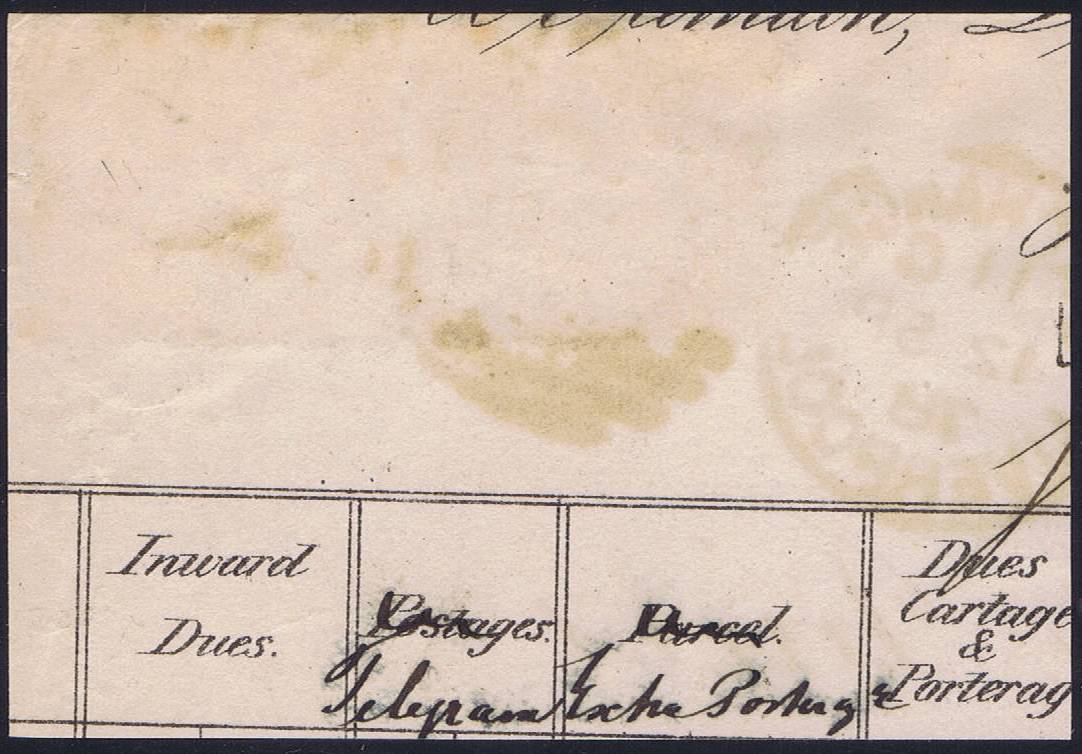 Inward
Dues.
Postages.
Telegram
Parcel.
Extra Porterage
Dues
Cartage
&
Porterag